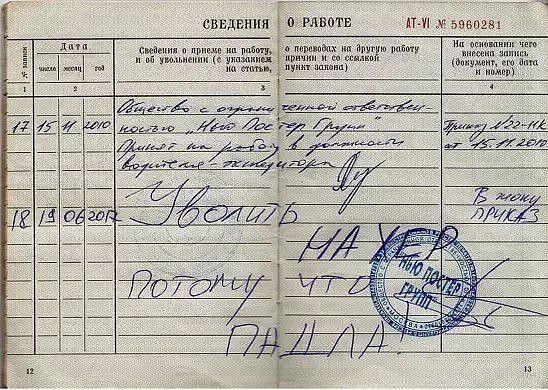 СВЕДЕНИЯ О РАБОТЕ АТ-VI № 5960281
№ записи
Дата
Сведения о приеме на работу, о переводах на другую работу
и об увольнении (с указанием причин и со ссылкой
на статью, пункт закона)
На основании чего
внесена запись
(документ, его дата
и номер)
число месяц год
1 2 3 4
Общество с ограниченной ответствен-
17 15 11 2010 ностью „Нью Постер Групп" Приказ №22-НК
Принят на работу в должности от 15.11.2010
водителя-экспедитора
18 19 06 2012 УВОЛИТЬ В жопу
ПРИКАЗ
НАХЕР
ПОТОМУ ЧТО
ПАДЛА!
НЬЮ ПОСТЕР
ГРУПП
МОСКВА
12 13